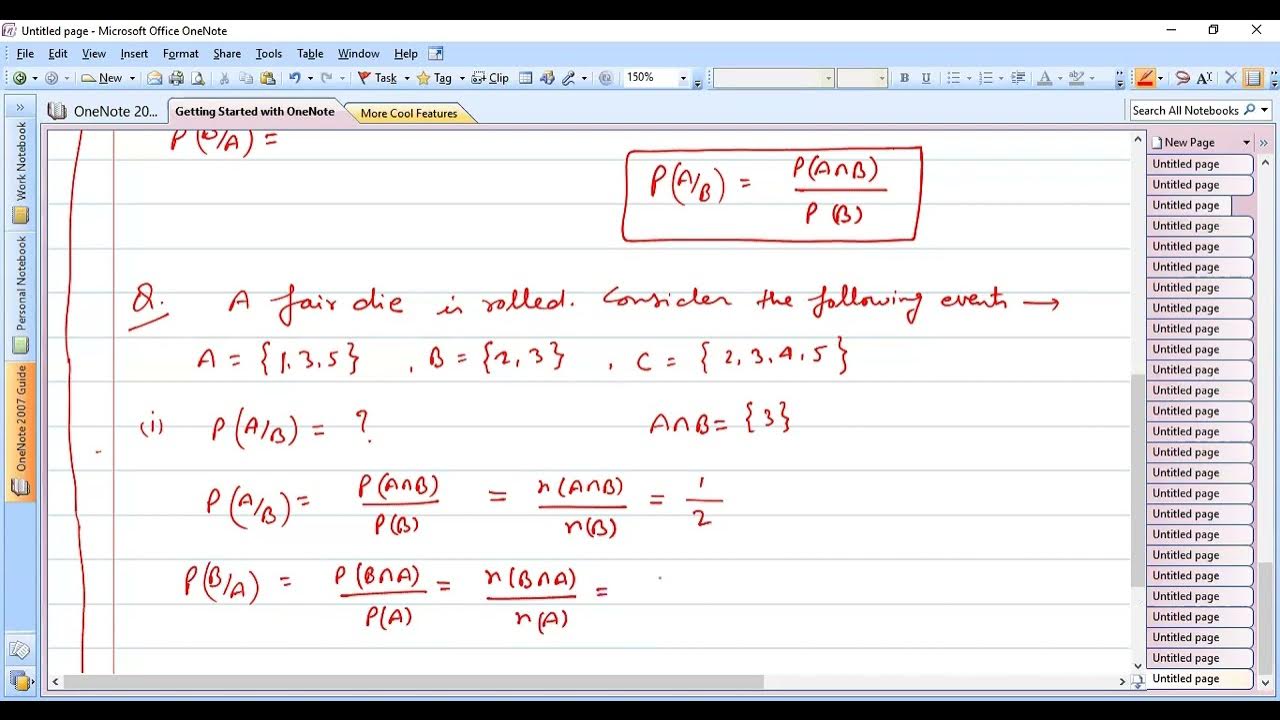 Untitled page - Microsoft Office OneNote
File Edit View Insert Format Share Tools Table Window Help
New Task Tag Clip 150% B U A ab
OneNote 20... Getting Started with OneNote More Cool Features Search All Notebooks
Work Notebook
Personal Notebook
OneNote 2007 Guide
P(B/A) =
P(A/B) = P(A∩B) / P(B)
Q. A fair die is rolled. Consider the following events →
A = {1, 3, 5} , B = {2, 3} , C = {2, 3, 4, 5}
(i) P(A/B) = ? A∩B = {3}
P(A/B) = P(A∩B) / P(B) = n(A∩B) / n(B) = 1/2
P(B/A) = P(B∩A) / P(A) = n(B∩A) / n(A) =
New Page
Untitled page
Untitled page
Untitled page
Untitled page
Untitled page
Untitled page
Untitled page
Untitled page
Untitled page
Untitled page
Untitled page
Untitled page
Untitled page
Untitled page
Untitled page
Untitled page
Untitled page
Untitled page
Untitled page
Untitled page
Untitled page
Untitled page
Untitled page
Untitled page
Untitled page
Untitled page